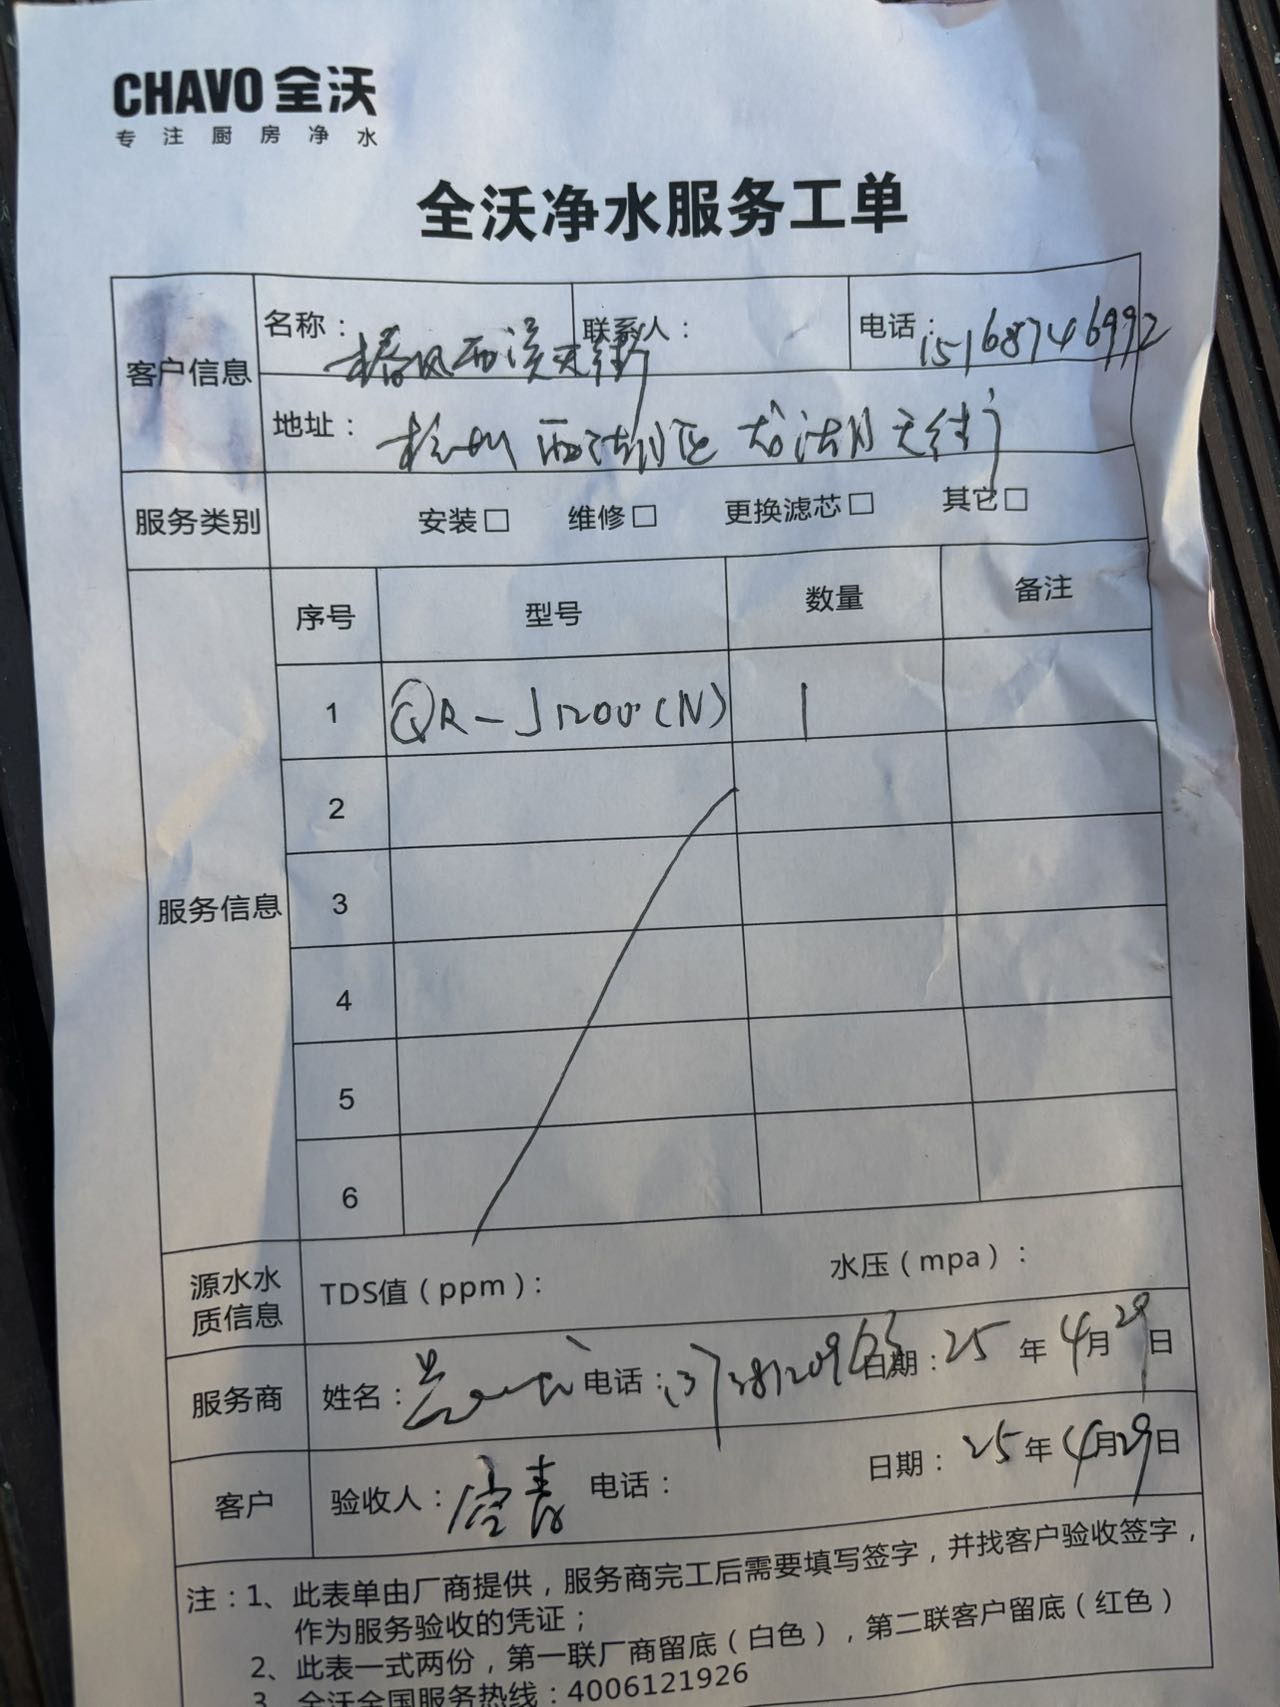 CHAVO 全沃
专注厨房净水
全沃净水服务工单
客户信息
名称： 椿风西溪天街
联系人：
电话：15168746992
地址： 杭州 西湖区 龙湖天街
服务类别
安装□ 维修□ 更换滤芯□ 其它□
服务信息
序号 型号 数量 备注
1 QR-J1200(N) 1
2
3
4
5
6
源水水质信息
TDS值（ppm）： 水压（mpa）：
服务商 姓名： 电话： 日期：25年4月29日
客户 验收人： 电话： 日期：25年4月29日
注：1、此表单由厂商提供，服务商完工后需要填写签字，并找客户验收签字，
作为服务验收的凭证；
2、此表一式两份，第一联厂商留底（白色），第二联客户留底（红色）
3、全沃全国服务热线：4006121926